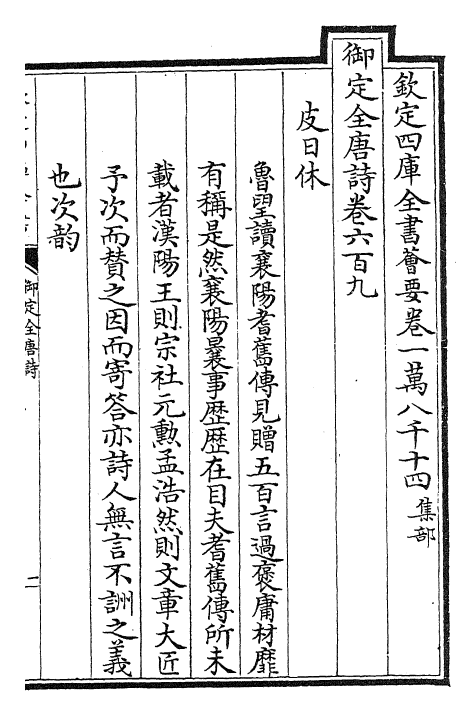 欽定四庫全書薈要卷一萬八千十四集部
御定全唐詩卷六百九
皮日休
魯望讀襄陽耆舊傳見贈五百言過褒庸材靡
有稱是然襄陽曩事歷歷在目夫耆舊傳所未
載者漢陽王則宗社元勳孟浩然則文章大匠
予次而賛之因而寄答亦詩人無言不詶之義
也次韵
御定全唐詩